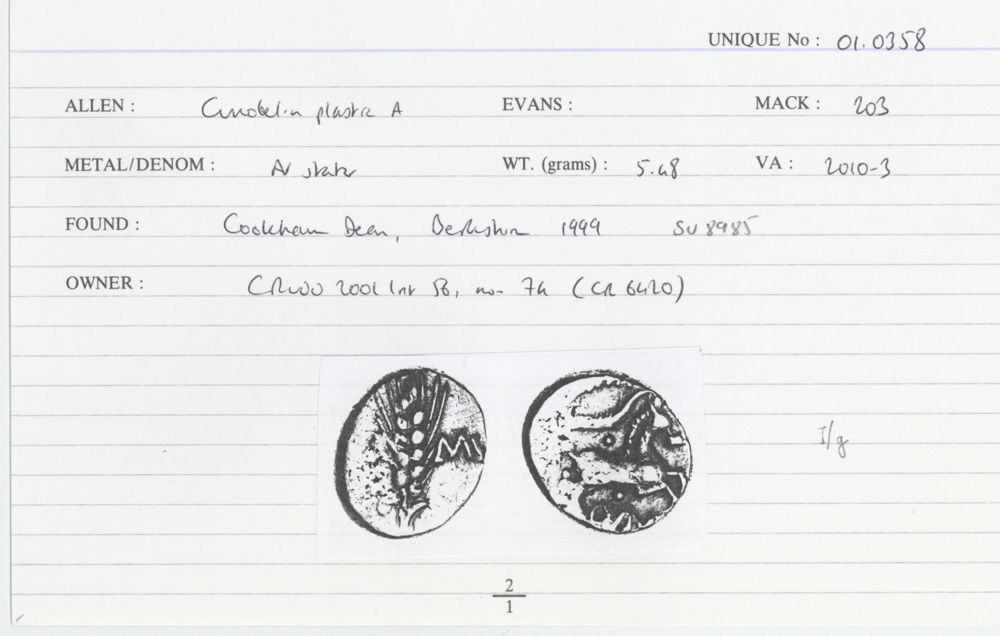 UNIQUE No : 01.0358
ALLEN : Cunobelin plastic A EVANS : MACK : 203
METAL/DENOM : AV stater WT. (grams) : 5.48 VA : 2010-3
FOUND : Cookham Dean, Berkshire 1999 SU 8985
OWNER : 2001 56, no. (CR 6420)
MV
I/g
2
1